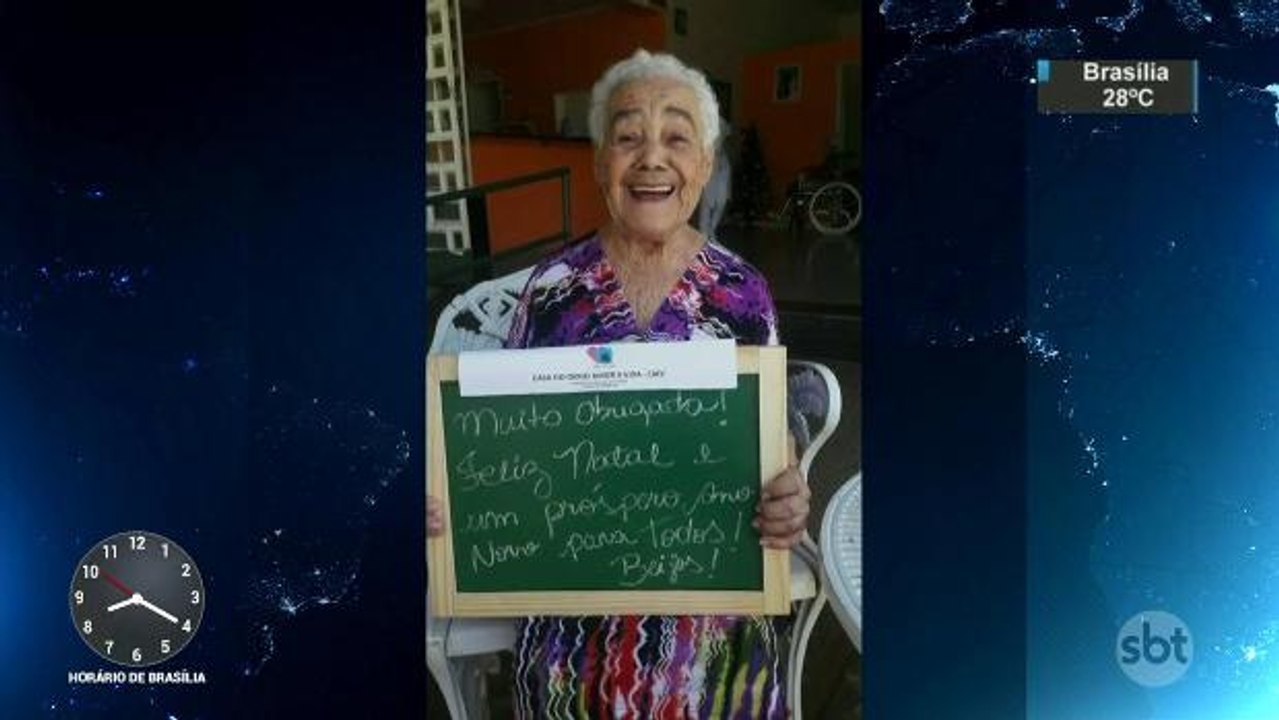 Brasília
28ºC
Muito Obrigada!
Feliz Natal e
um próspero Ano
Novo para Todos!
Beijos!
12
11
1
10
2
9
3
8
4
7
5
6
HORÁRIO DE BRASÍLIA
sbt